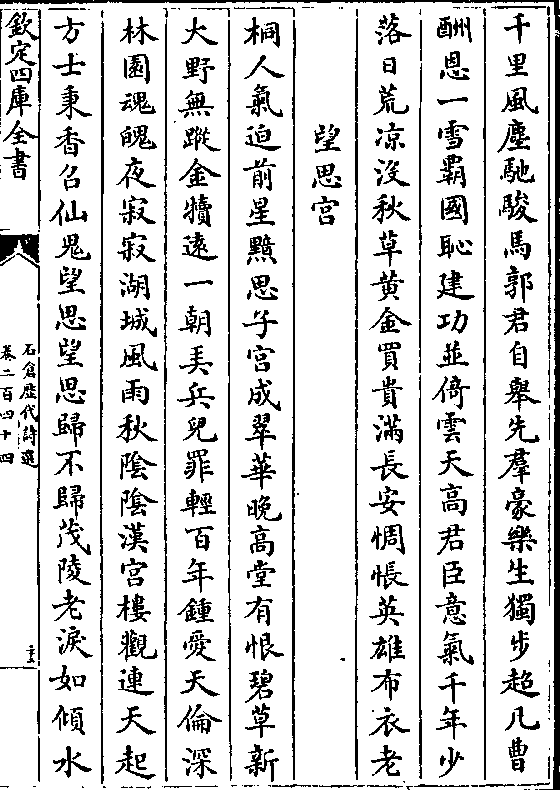 千里風塵馳駿馬郭君自舉先羣豪樂生獨步超凡曹
酬恩一雪霸國恥建功並倚雲天高君臣意氣千年少
落日荒凉没秋草黄金買貴滿長安惆悵英雄布衣老
望思宫
桐人氣迫前星黯思子宫成翠華晚高堂有恨碧草新
大野無蹤金犢遠一朝弄兵兒罪輕百年鍾愛天倫深
林園魂魄夜寂寂湖城風雨秋陰陰漢宫樓觀連天起
方士秉香召仙鬼望思望思歸不歸茂陵老淚如傾水
欽定四庫全書
石倉歴代詩選
卷二百四十四